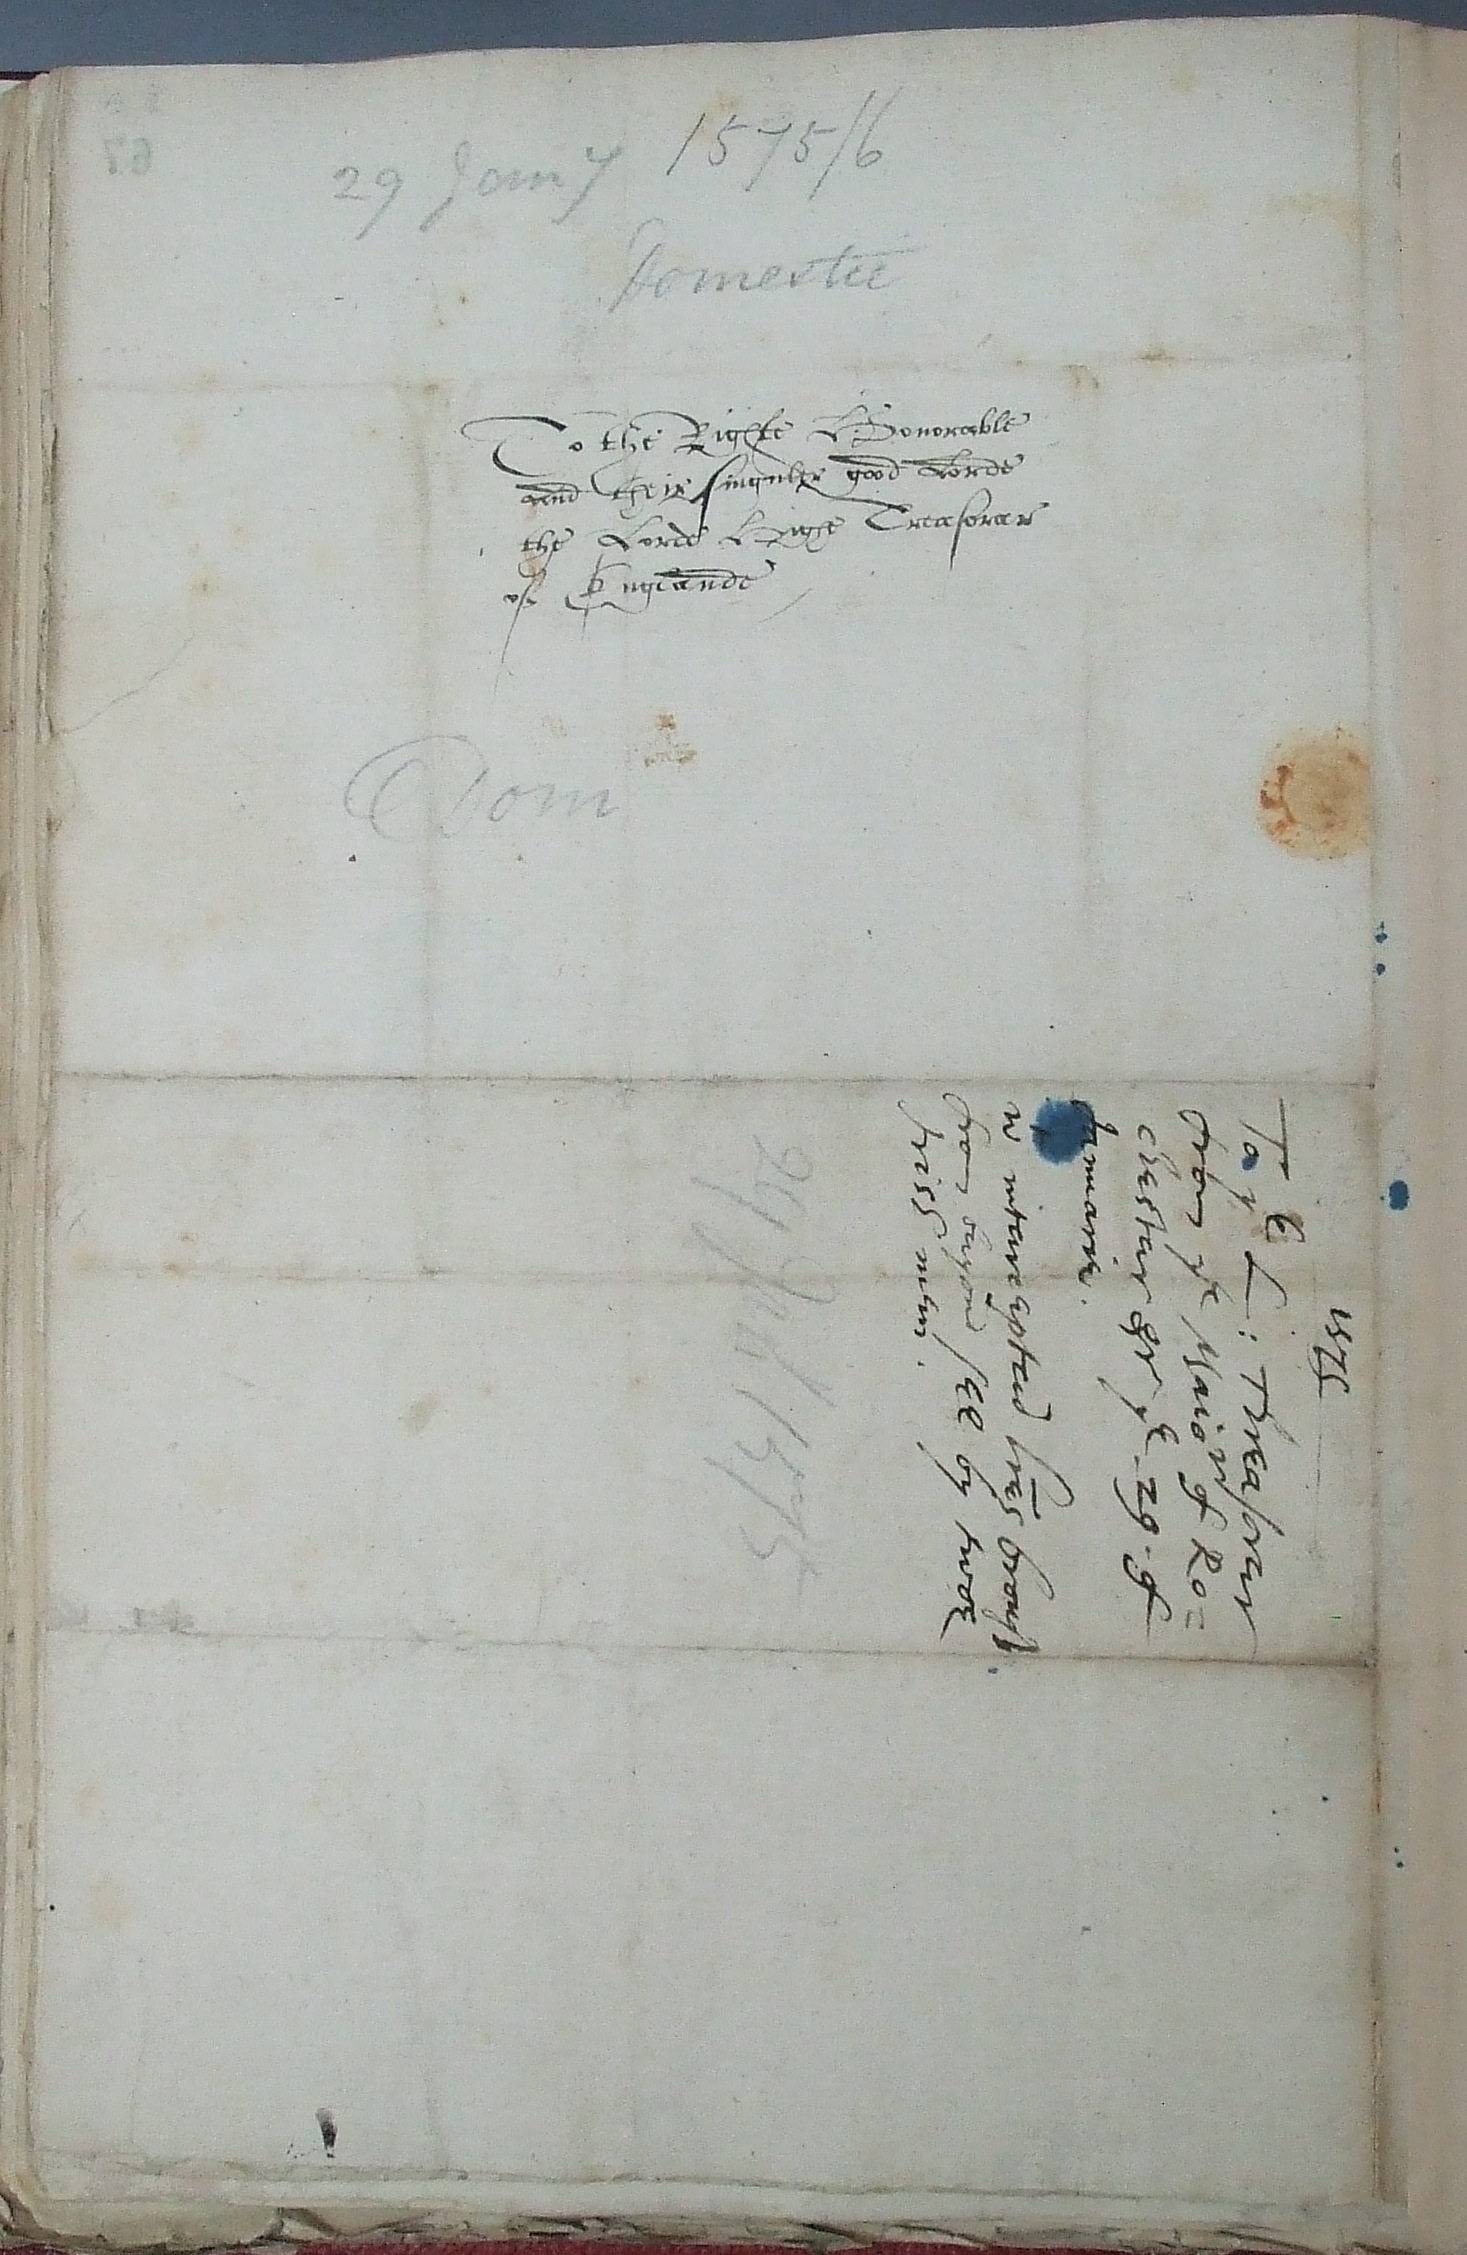 29 Jany 1575/6
Domestic
To the Righte Honorable
and their singuler good Lorde
the Lorde Highe Treasorar
of Englande
Dom
1575
To ye L: Threasorar
from ye Maior of Ro=
chestar of ye .29. of
Januarie.
wt intarcepted lres brought
from beyond see by twoe
Irish men.
29 Jany 1575